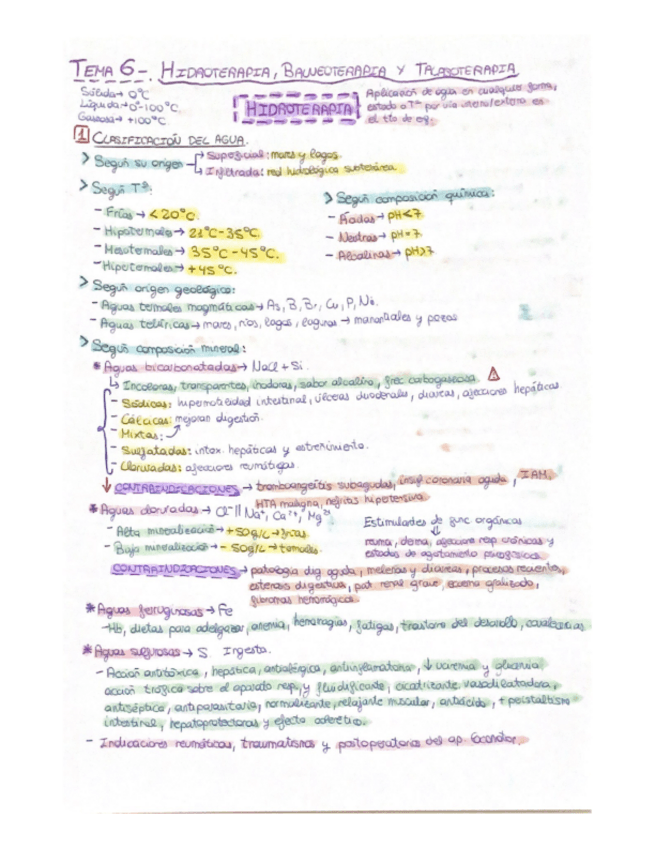 TEMA 6-. HIDROTERAPIA, BALNEOTERAPIA Y TALASOTERAPIA
Sólida → 0ºC
Líquida → 0º-100ºC
Gaseosa → +100ºC
HIDROTERAPIA
Aplicación de agua en cualquier forma,
estado o Tª por vía interna/externa es
el tto de enf.
1 CLASIFICACIÓN DEL AGUA.
> Según su origen
→ Superficial: mares y lagos.
↳ Infiltrada: red hidrológica subterránea.
> Según Tª:
- Frías → <20ºC.
- Hipotermales → 21ºC-35ºC.
- Mesotermales → 35ºC-45ºC.
- Hipertermales → +45ºC.
> Según composición química:
- Ácidas → pH<7
- Neutras → pH=7
- Alcalinas → pH>7
> Según origen geológico:
- Aguas termales magmáticas → As, B, Br, Cu, P, Na.
- Aguas telúricas → mares, ríos, lagos, lagunas → manantiales y pozos
> Según composición mineral:
* Aguas bicarbonatadas → NaCl + Si.
↳ Incoloras, transparentes, inodoras, sabor alcalino, frec carbogaseosa.
- Sódicas: hipermotilidad intestinal, úlceras duodenales, diarreas, afecciones hepáticas.
- Cálcicas: mejoran digestión.
- Mixtas:
- Sulfatadas: intox. hepáticas y estreñimiento.
- Cloruradas: afecciones reumáticas.
↓ CONTRAINDICACIONES → tromboangeítis subagudas, insuf coronaria aguda, IAM,
HTA maligna, nefritis hipotensiva.
* Aguas cloruradas → Cl⁻ || Na⁺, Ca²⁺, Mg²⁺
- Alta mineralización → +50g/L → frías
- Baja mineralización → -50g/L → termales.
Estimulantes de func orgánicas
↓
reuma, derma, afecciones resp crónicas y
estados de agotamiento psicofísico.
CONTRAINDICACIONES → patología dig aguda, melenas y diarreas, procesos recientes,
estenosis digestiva, pat renal grave, eccema gralizado,
fibromas hemorrágicos.
* Aguas ferruginosas → Fe
→ Hb, dietas para adelgazar, anemia, hemorragias, fatigas, trastorno del desarrollo, convalecencias
* Aguas sulfurosas → S. Ingesta.
- Acción antitóxica, hepática, antialérgica, antiinflamatoria, ↓ uricemia y glucemia.
acción trófica sobre el aparato resp, y fluidificante, cicatrizante vasodilatadora,
antiséptica, antiparasitaria, normalizante, relajante muscular, antiácido, + peristaltismo
intestinal, hepatoprotectoras y efecto colerético.
- Indicaciones reumáticas, traumatismos y postoperatorios del ap. locomotor.